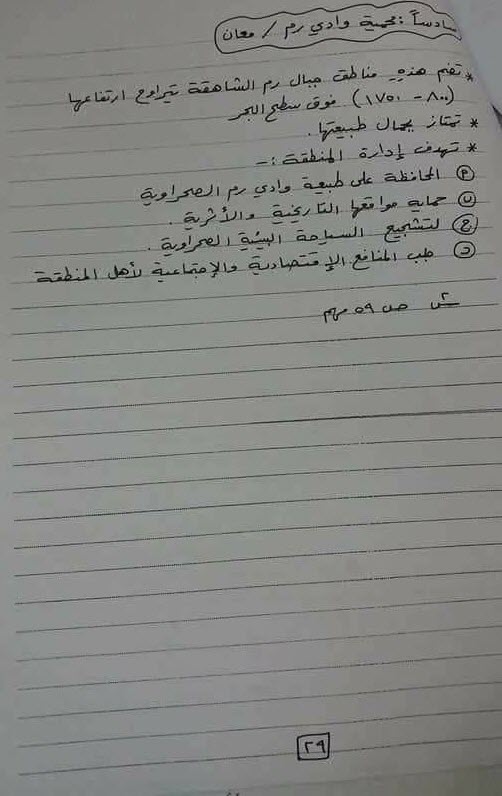 سادساً : محمية وادي رم / معان
* تضم هذه مناطق جبال رم الشاهقة تتراوح ارتفاعها
(٨٠٠ - ١٧٥٠) فوق سطح البحر
* تمتاز بجمال طبيعتها .
* تهدف إدارة المنطقة :-
أ المحافظة على طبيعة وادي رم الصحراوية
ب حماية مواقعها التاريخية والأثرية .
ج لتشجيع السياحة البيئية الصحراوية .
د جلب المنافع الإقتصادية والإجتماعية لأهل المنطقة
ص ٥٩ مهم
٢٩